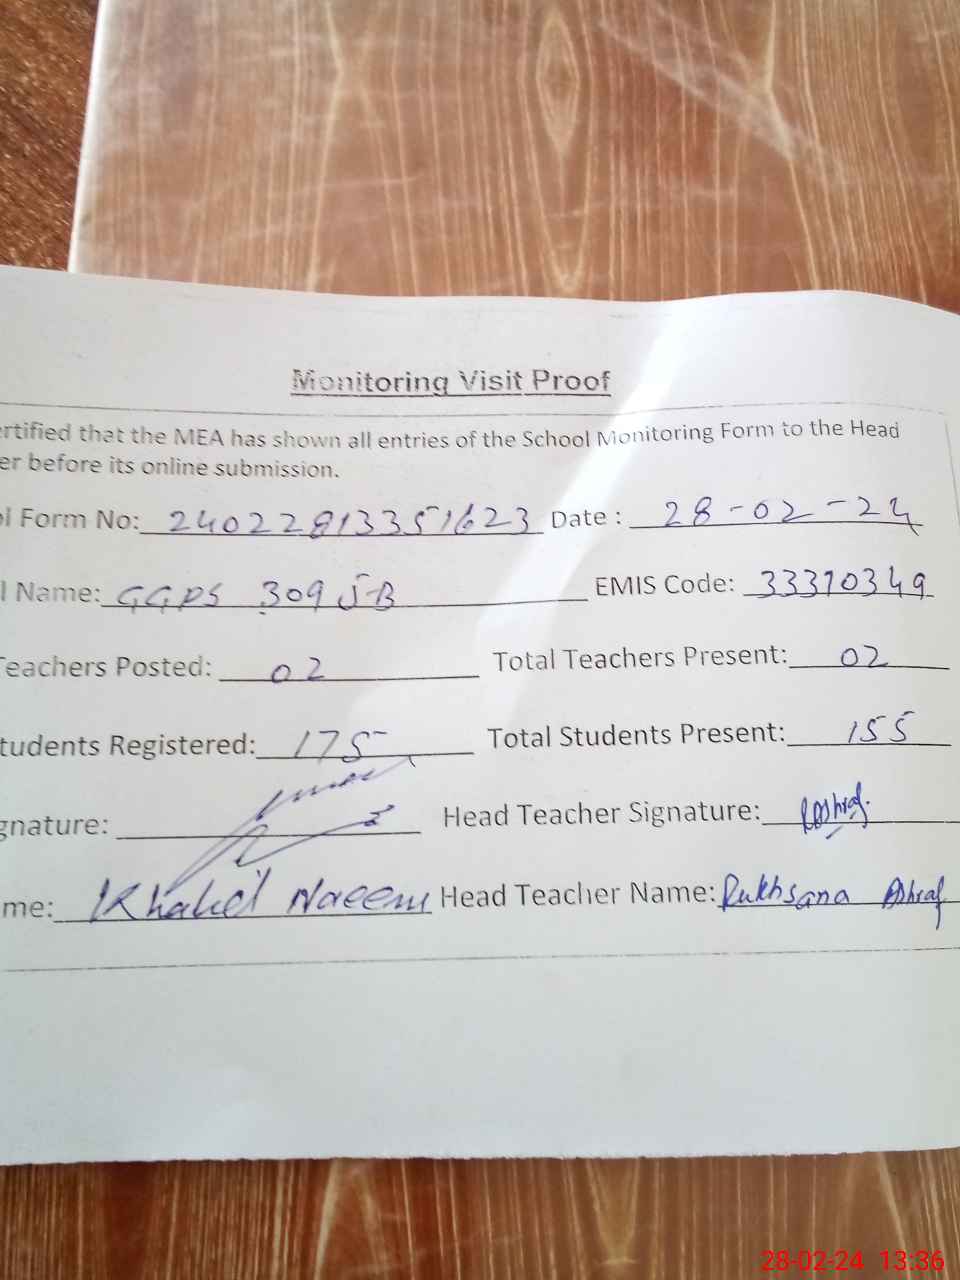 Monitoring Visit Proof
ertified that the MEA has shown all entries of the School Monitoring Form to the Head
er before its online submission.
ol Form No: 240228133351623 Date : 28-02-24
l Name: GGPS 309 JB EMIS Code: 33310349
Teachers Posted: 02 Total Teachers Present: 02
tudents Registered: 175 Total Students Present: 155
gnature: Head Teacher Signature: RAshraf.
me: Khalid Naeem Head Teacher Name: Rukhsana Ashraf
28-02-24 13:36